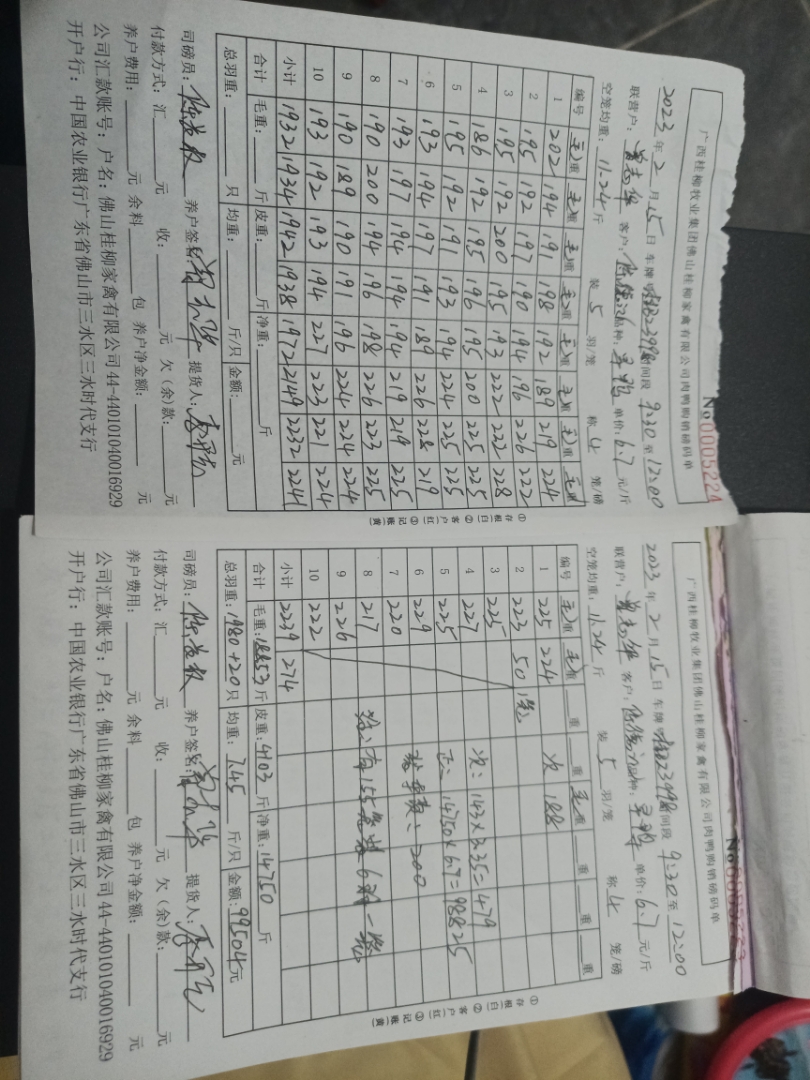 广西桂柳牧业集团佛山桂柳家禽有限公司肉鸭购销磅码单
No 0005224
2023年2月15日 车牌 时间段 9:30至12:00
联营户: 客户: 品种: 单价: 6.7元/斤
空笼均重: 11.24斤 装5羽/笼 称4笼/磅
编号 毛重 毛重 毛重 毛重 毛重 毛重 毛重 毛重
1 202 194 191 198 192 189 219 224
2 195 192 197 190 194 196 226 222
3 195 192 200 195 193 222 222 228
4 186 192 195 196 195 200 225 225
5 195 192 191 193 194 224 225 225
6 193 194 197 191 189 226 228 219
7 193 197 194 194 194 219 219 225
8 190 200 194 196 198 226 223 225
9 190 189 190 191 196 224 224 224
10 193 192 193 194 227 223 221 224
小计 1932 1934 1942 1938 1972 2149 2232 2241
合计 毛重: 斤 皮重: 斤 净重: 斤
总羽重: 只 均重: 斤/只 金额: 元
司磅员: 养户签名: 提货人:
付款方式: 汇 元 收: 元 欠(余)款: 元
养户费用: 元 余料 包 养户净金额: 元
公司汇款账号: 户名: 佛山桂柳家禽有限公司 44-440101040016929
开户行: 中国农业银行广东省佛山市三水区三水时代支行
①存根(白) ②客户(红) ③记账(黄)
广西桂柳牧业集团佛山桂柳家禽有限公司肉鸭购销磅码单
No
2023年2月15日 车牌 时间段 9:30至12:00
联营户: 客户: 品种: 单价: 6.7元/斤
空笼均重: 11.24斤 装5羽/笼 称4笼/磅
编号 毛重 毛重 重 重 毛重 重 重 重
1 225 224 次 188
2 223 50 1笼
3 225
4 227 次: 143×3.35=479
5 225 正: 14750×6.7=98825
6 229 200
7 220
8 217
9 226
10 222
小计 2239 274
合计 毛重: 18853斤 皮重: 4103斤 净重: 14750斤
总羽重: 1980+20只 均重: 7.45斤/只 金额: 99504元
司磅员: 养户签名: 提货人:
付款方式: 汇 元 收: 元 欠(余)款: 元
养户费用: 元 余料 包 养户净金额: 元
公司汇款账号: 户名: 佛山桂柳家禽有限公司 44-440101040016929
开户行: 中国农业银行广东省佛山市三水区三水时代支行
①存根(白) ②客户(红) ③记账(黄)